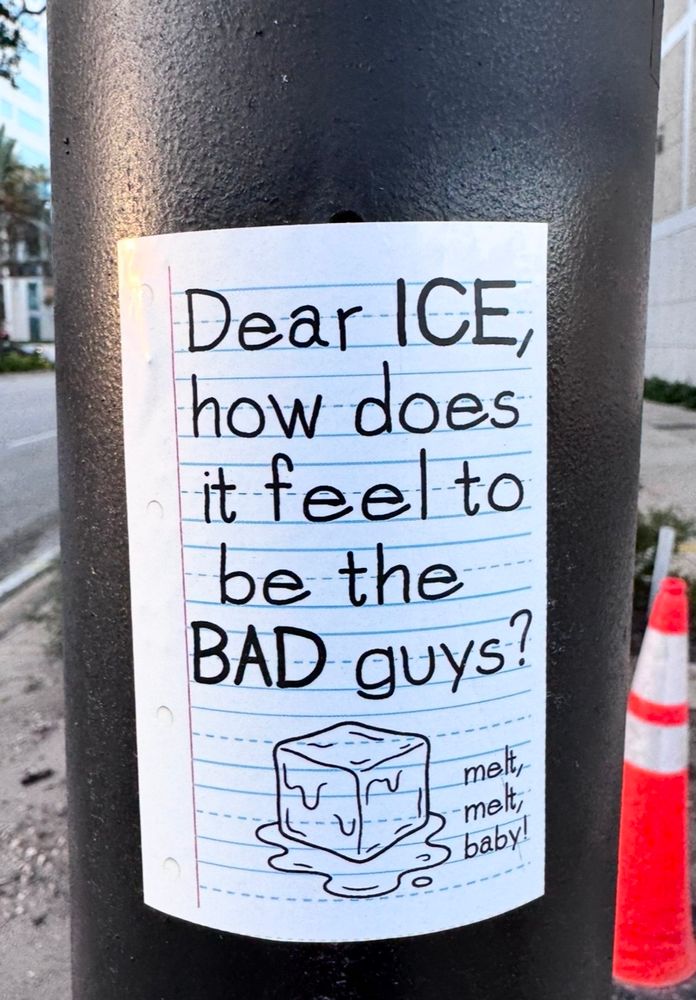 Dear ICE,
how does
it feel to
be the
BAD guys?
melt,
melt,
baby!